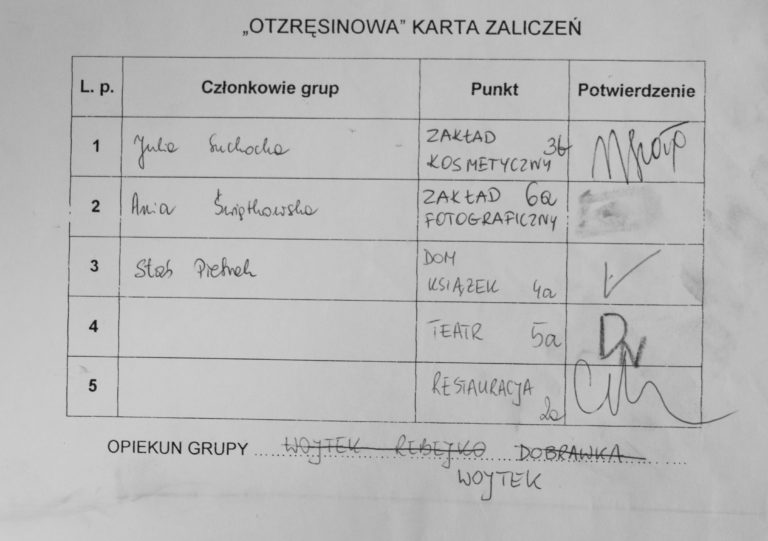 „OTZRĘSINOWA” KARTA ZALICZEŃ
L. p. Członkowie grup Punkt Potwierdzenie
1 Julia Suchocka ZAKŁAD KOSMETYCZNY 3b
2 Ania Świątkowska ZAKŁAD FOTOGRAFICZNY 6a
3 Staś Pietrek DOM KSIĄŻEK 4a
4 TEATR 5a DN
5 RESTAURACJA 2a
OPIEKUN GRUPY WOJTEK REBEJKO DOBRAWKA
WOJTEK